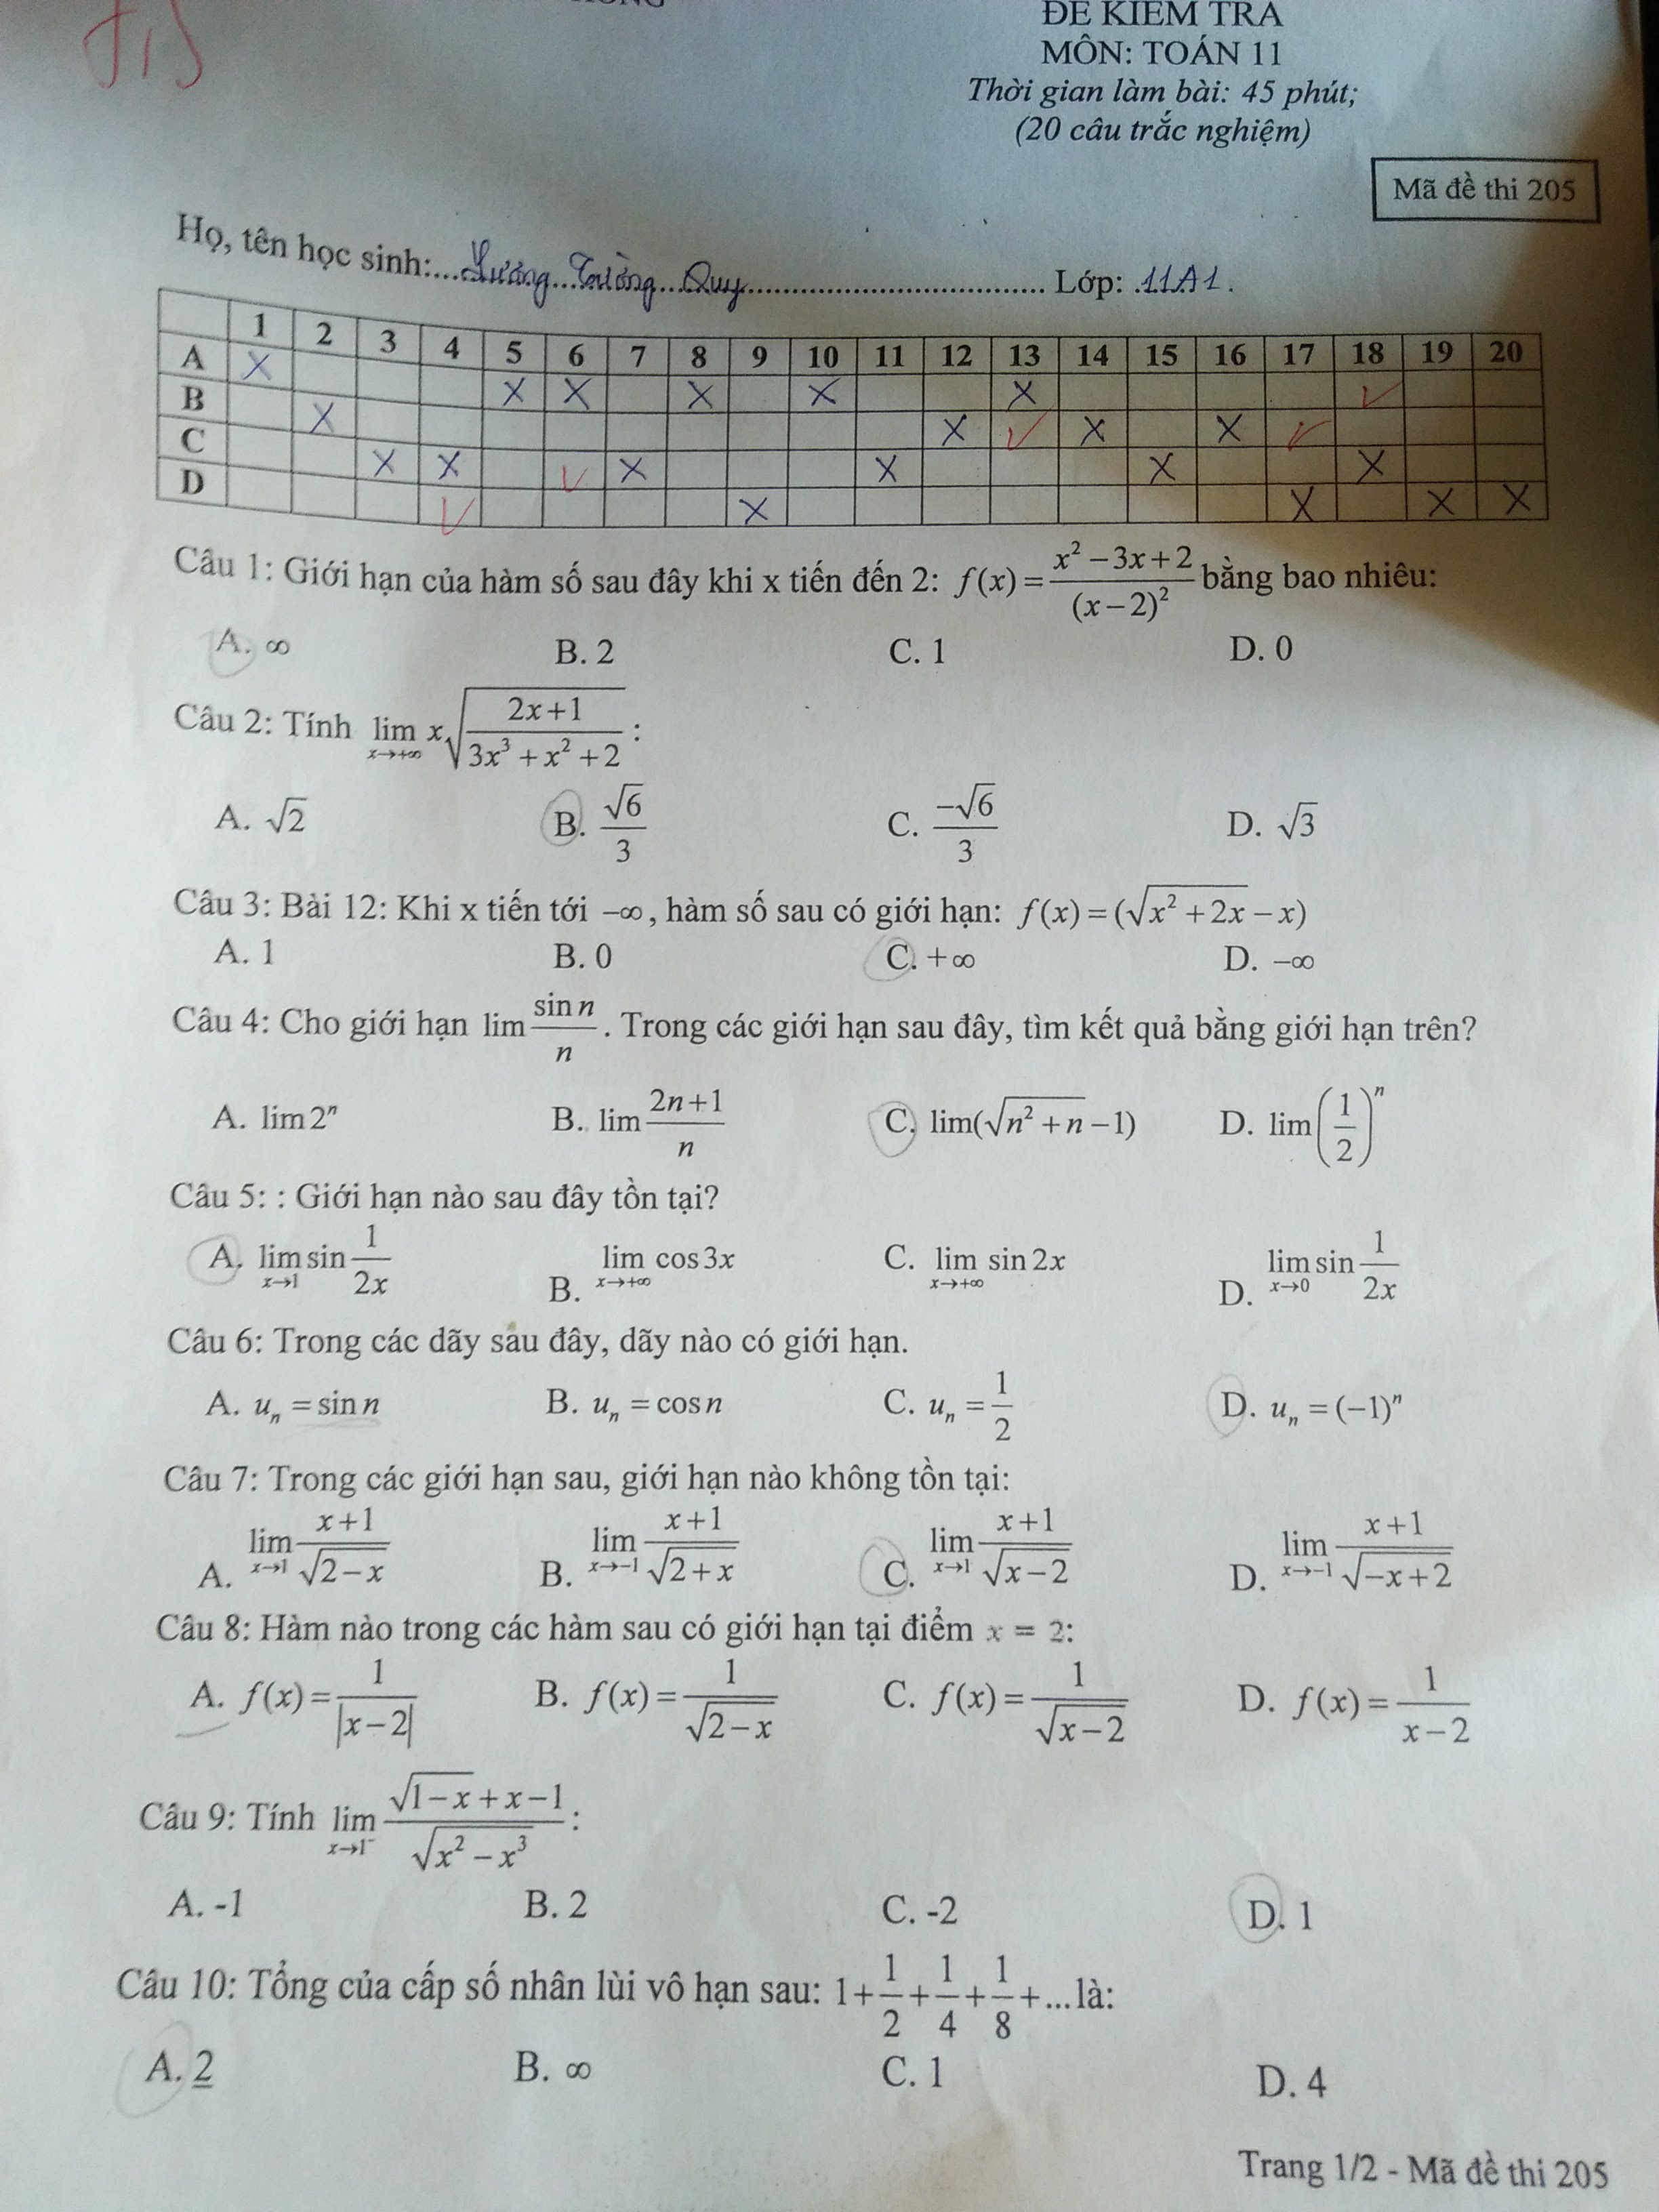 ĐỀ KIỂM TRA
MÔN: TOÁN 11
Thời gian làm bài: 45 phút;
(20 câu trắc nghiệm)
Mã đề thi 205
Họ, tên học sinh:...Lương...Trường...Quy... Lớp: .11A1.
1 2 3 4 5 6 7 8 9 10 11 12 13 14 15 16 17 18 19 20
A X
B X X X X X X
C X X X X X X X X
D X X X X
Câu 1: Giới hạn của hàm số sau đây khi x tiến đến 2: f(x) = (x² − 3x + 2)/(x − 2)² bằng bao nhiêu:
A. ∞ B. 2 C. 1 D. 0
Câu 2: Tính lim x→+∞ x√((2x+1)/(3x³ + x² + 2)) :
A. √2 B. √6/3 C. −√6/3 D. √3
Câu 3: Bài 12: Khi x tiến tới −∞, hàm số sau có giới hạn: f(x) = (√(x² + 2x) − x)
A. 1 B. 0 C. +∞ D. −∞
Câu 4: Cho giới hạn lim sin n/n. Trong các giới hạn sau đây, tìm kết quả bằng giới hạn trên?
A. lim 2ⁿ B. lim (2n+1)/n C. lim(√(n² + n) − 1) D. lim (1/2)ⁿ
Câu 5: : Giới hạn nào sau đây tồn tại?
A. lim x→1 sin 1/2x B. lim x→+∞ cos 3x C. lim x→+∞ sin 2x D. lim x→0 sin 1/2x
Câu 6: Trong các dãy sau đây, dãy nào có giới hạn.
A. uₙ = sin n B. uₙ = cos n C. uₙ = 1/2 D. uₙ = (−1)ⁿ
Câu 7: Trong các giới hạn sau, giới hạn nào không tồn tại:
A. lim x→1 (x+1)/√(2−x) B. lim x→−1 (x+1)/√(2+x) C. lim x→1 (x+1)/√(x−2) D. lim x→−1 (x+1)/√(−x+2)
Câu 8: Hàm nào trong các hàm sau có giới hạn tại điểm x = 2:
A. f(x) = 1/|x−2| B. f(x) = 1/√(2−x) C. f(x) = 1/√(x−2) D. f(x) = 1/(x−2)
Câu 9: Tính lim x→1⁻ (√(1−x) + x − 1)/√(x² − x³) :
A. -1 B. 2 C. -2 D. 1
Câu 10: Tổng của cấp số nhân lùi vô hạn sau: 1 + 1/2 + 1/4 + 1/8 + ... là:
A. 2 B. ∞ C. 1 D. 4
Trang 1/2 - Mã đề thi 205